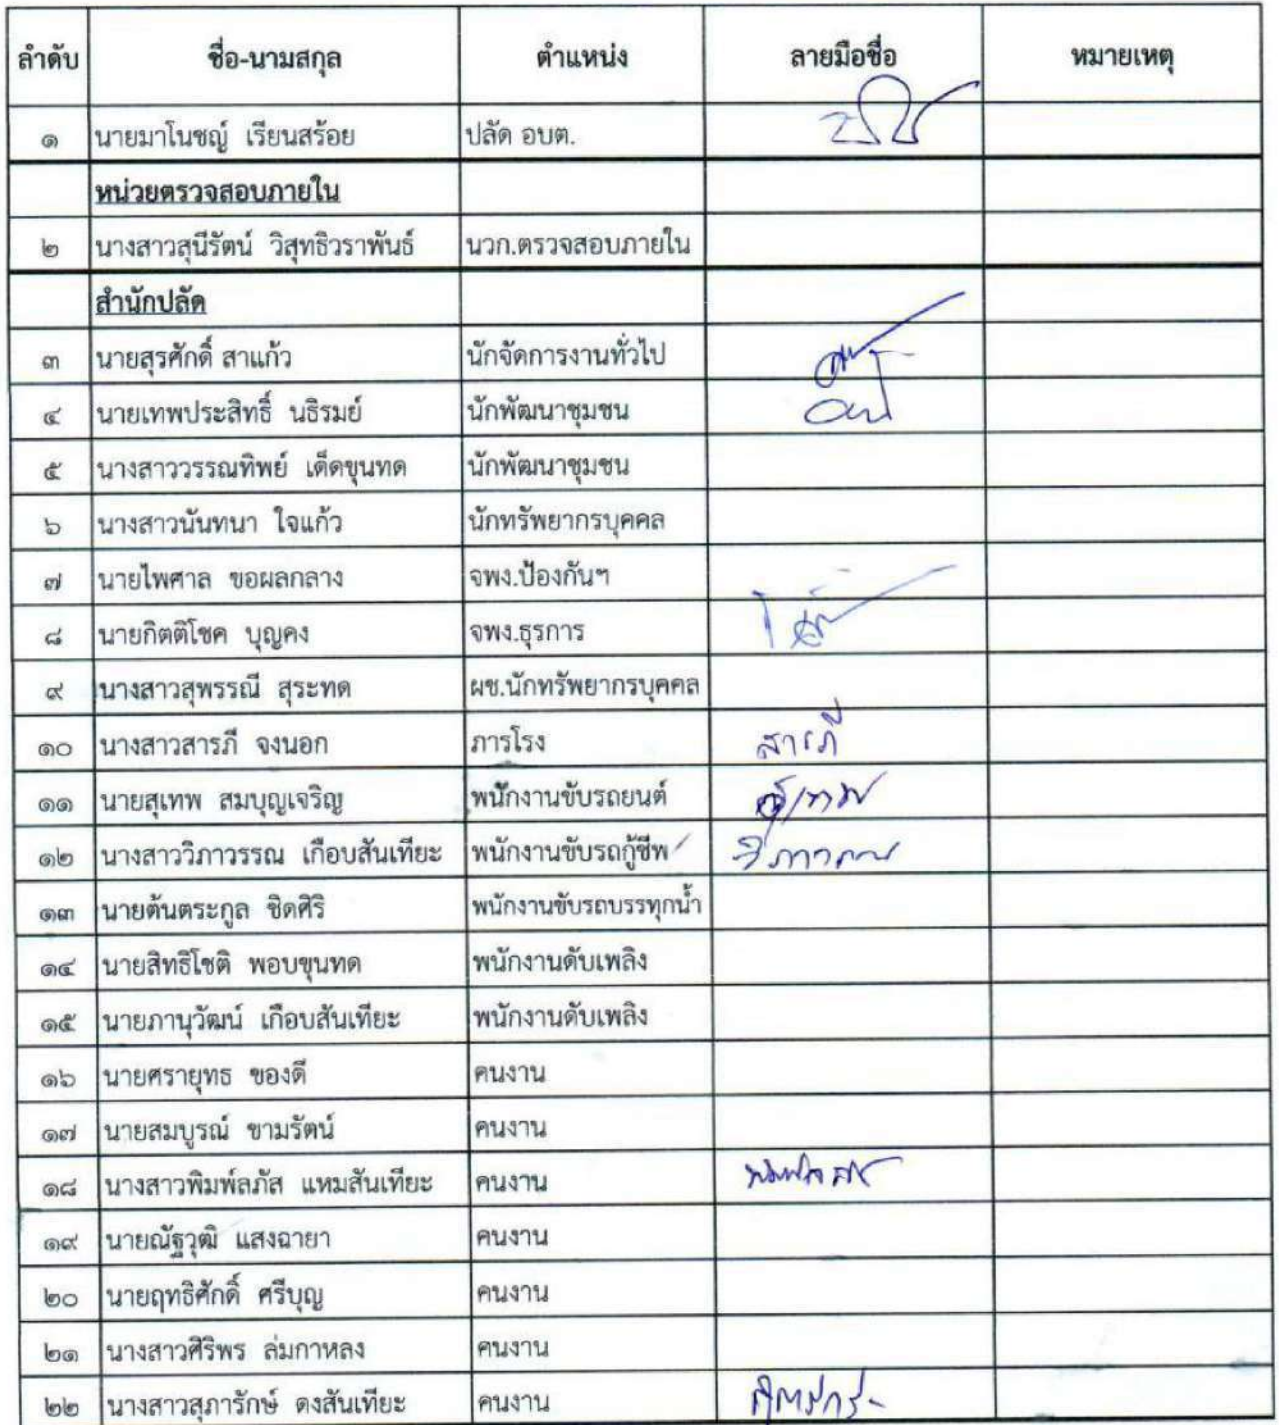 ลำดับ ชื่อ-นามสกุล ตำแหน่ง ลายมือชื่อ หมายเหตุ
๑ นายมาโนชญ์ เรียนสร้อย ปลัด อบต.
หน่วยตรวจสอบภายใน
๒ นางสาวสุนีรัตน์ วิสุทธิวราพันธ์ นวก.ตรวจสอบภายใน
สำนักปลัด
๓ นายสุรศักดิ์ สาแก้ว นักจัดการงานทั่วไป
๔ นายเทพประสิทธิ์ นธิรมย์ นักพัฒนาชุมชน
๕ นางสาววรรณทิพย์ เด็ดขุนทด นักพัฒนาชุมชน
๖ นางสาวนันทนา ใจแก้ว นักทรัพยากรบุคคล
๗ นายไพศาล ขอผลกลาง จพง.ป้องกันฯ
๘ นายกิตติโชค บุญคง จพง.ธุรการ
๙ นางสาวสุพรรณี สุระทด ผช.นักทรัพยากรบุคคล
๑๐ นางสาวสารภี จงนอก ภารโรง สารภี
๑๑ นายสุเทพ สมบุญเจริญ พนักงานขับรถยนต์ สุเทพ
๑๒ นางสาววิภาวรรณ เกือบสันเทียะ พนักงานขับรถกู้ชีพ วิภาวรรณ
๑๓ นายต้นตระกูล ชิดศิริ พนักงานขับรถบรรทุกน้ำ
๑๔ นายสิทธิโชติ พอบขุนทด พนักงานดับเพลิง
๑๕ นายภานุวัฒน์ เกือบสันเทียะ พนักงานดับเพลิง
๑๖ นายศรายุทธ ของดี คนงาน
๑๗ นายสมบูรณ์ ขามรัตน์ คนงาน
๑๘ นางสาวพิมพ์ลภัส แหมสันเทียะ คนงาน พิมพ์ลภัส
๑๙ นายณัฐวุฒิ แสงฉายา คนงาน
๒๐ นายฤทธิศักดิ์ ศรีบุญ คนงาน
๒๑ นางสาวศิริพร ล่มกาหลง คนงาน
๒๒ นางสาวสุภารักษ์ ดงสันเทียะ คนงาน